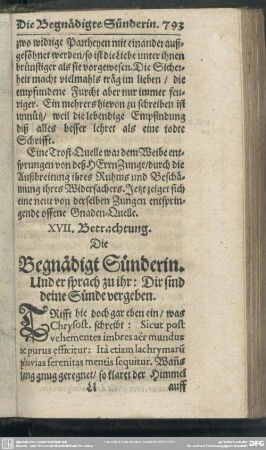 Die Begnädigte Sünderin. 793
zwo widrige Partheyen mit einander auß-
gesöhnet werden/ so ist die Liebe unter ihnen
brünstiger als sie vor gewesen. Die Sicher-
heit macht vielmahls träg im lieben / die
empfundene Furcht aber nur immer feu-
riger. Ein mehrers hievon zu schreiben ist
unnütz/ weil die lebendige Empfindung
diß alles besser lehret als eine todte
Schrifft.
Eine Trost-Quelle war dem Weibe ent-
sprungen von deß HErrn Zunge/ durch die
Außbreitung ihres Ruhms und Beschä-
mung ihres Widersachers. Jetzt zeiget sich
eine neue von derselben Zungen entsprin-
gende offene Gnaden-Quelle.
XVII. Betrachtung.
Die
Begnädigt Sünderin.
Und er sprach zu ihr: Dir sind
deine Sünde vergeben.
TRifft hie doch gar eben ein/ was
Chrysost. schreibt : Sicut post
vehementes imbres aër mundus
ac purus efficitur: Ita etiam lachrymarũ
pluvias serenitas mentis sequitur. Wañs
lang gnug geregnet/ so klaret der Himmel
Ll auff